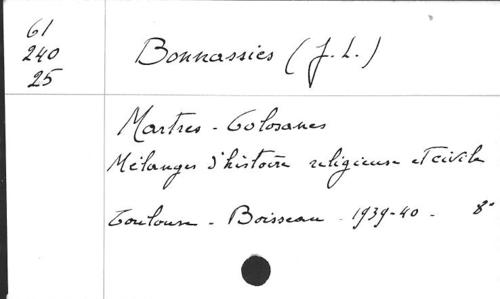 61
240
25
Bonnassies (J. L.)
Martres - Tolosanes
Mélanges d'histoire religieuse et civile
Toulouse - Boisseau - 1939-40 - 8°